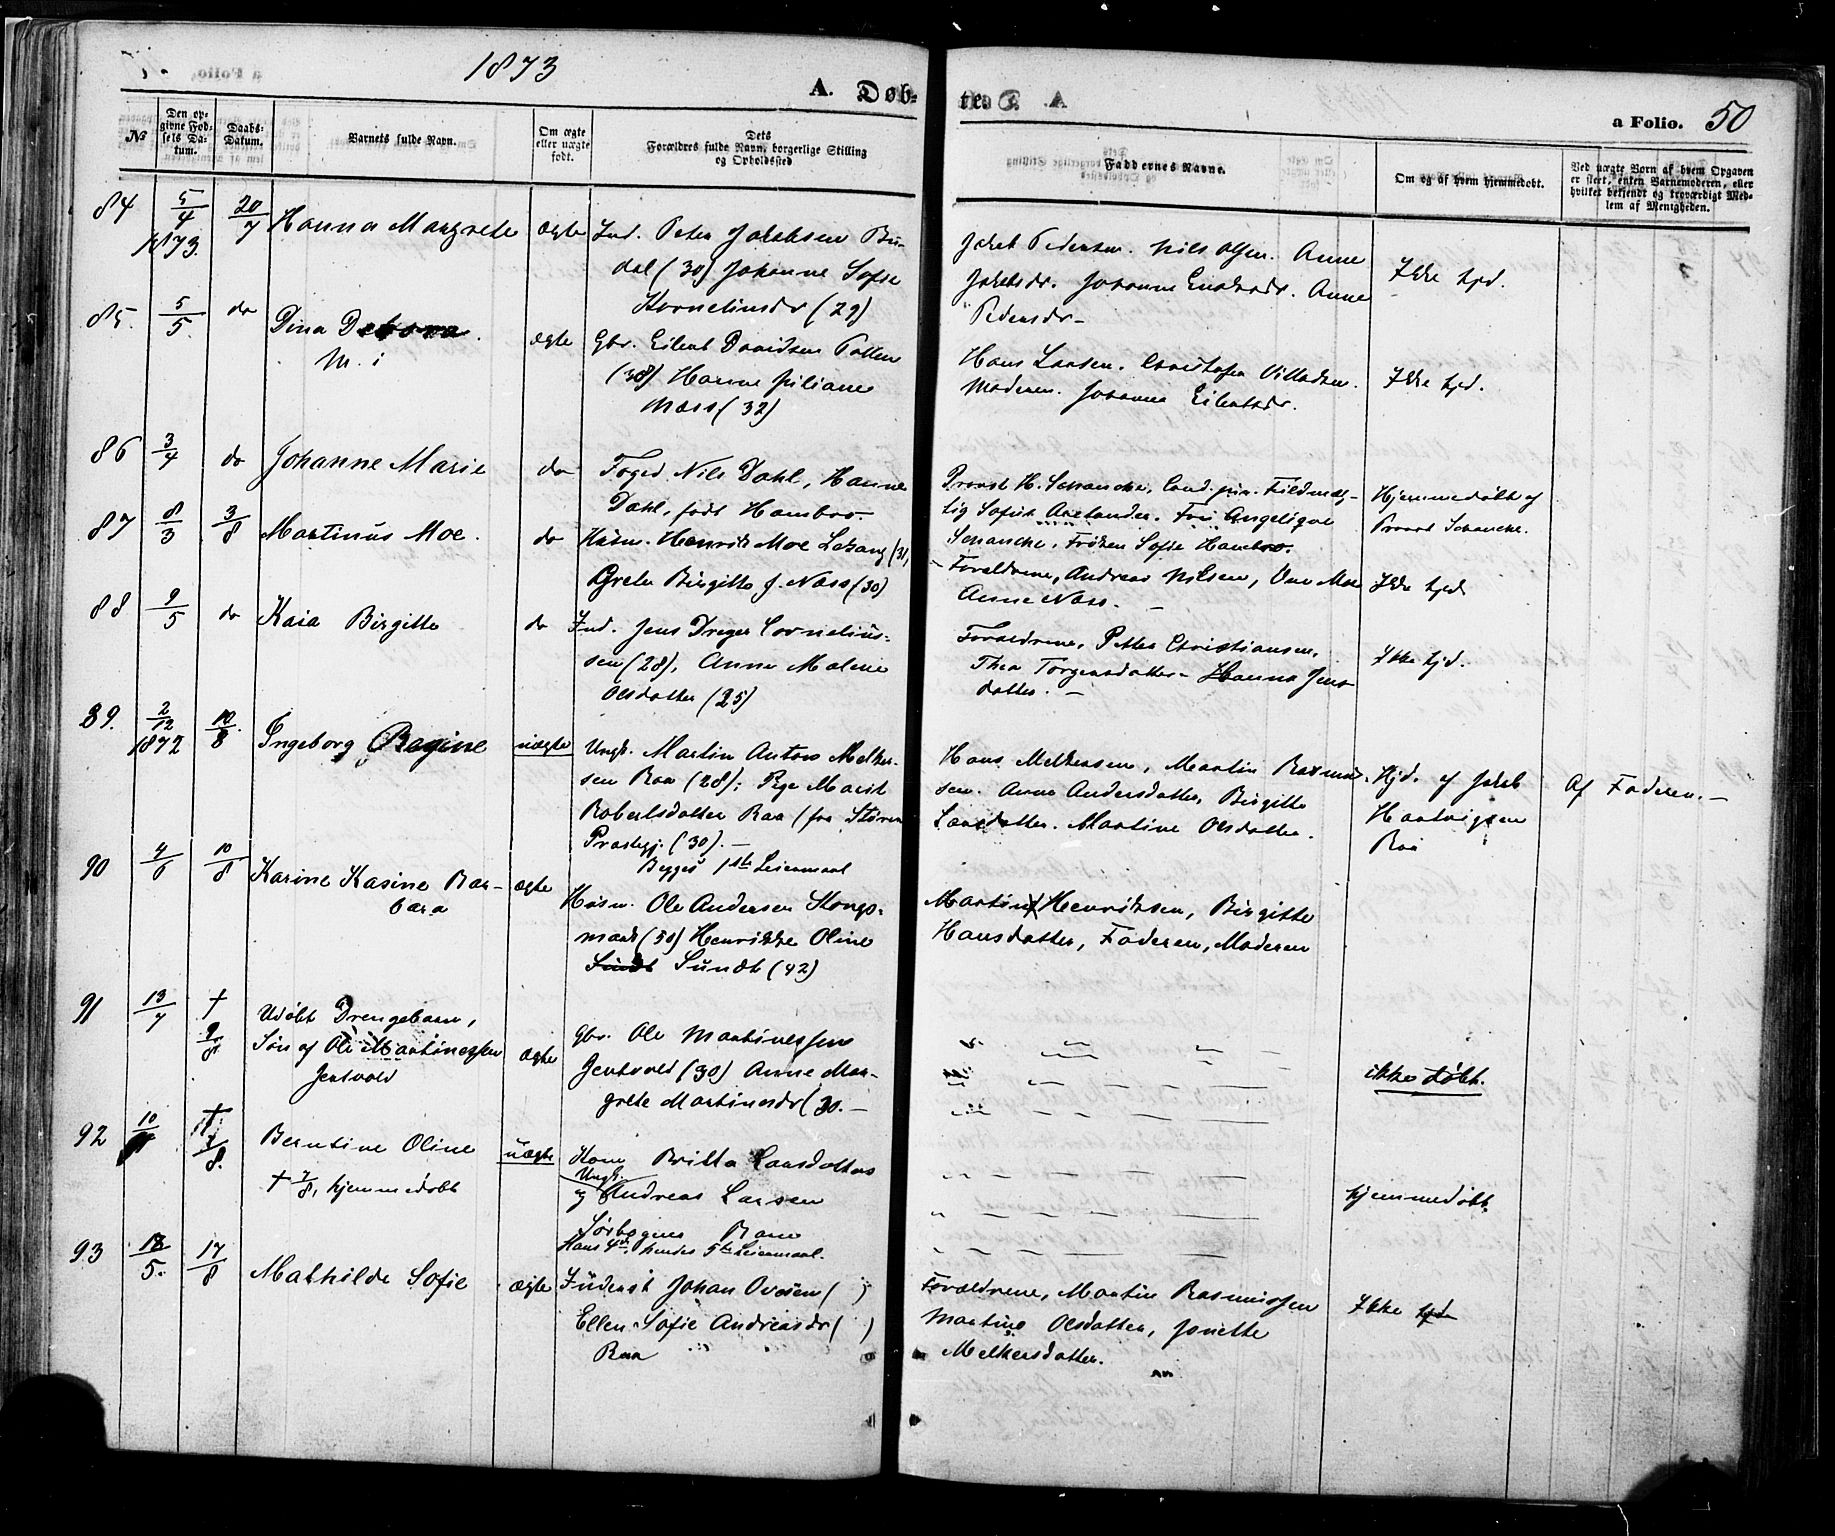 1873
A. Døb-
te.
a Folio. 50
No
Den op-
givne Fød-
sels Da-
tum.
Daabs-
Datum.
Barnets fulde Navn.
Om ægte
eller uægte
født.
Dets
Forældres fulde Navn, borgerlige Stilling
og Opholdssted
Faddernes Navne.
Om og af hvem hjemmedøbt.
Ved uægte Børn af hvem Opgaven
er skeet, enten Barnemoderen, eller
hvilket bekjendt og troværdigt Med-
lem af Menigheden.
84 5/4 1873. 20/7 Hanna Margrete ægte Ind. Peter Jakobsen Bu-
dal (30) Johanne Sofie
Kornelius dr (29)
Jakob Pedersen. Nils Olsen. Anne
Jakobsdr. Johanne Anne
Pedersdr-
Ikke hjd.
85. 5/5. do Dina
ægte Gbr. Eilert Davidsen
(38) Hanne Juliane
Næss (32)
Hans Larsen. Christofer Villadsen.
Moderen. Johanna Eilertsdr.
Ikke hjd.
86 3/4 do Johanne Marie do Foged Nils Dahl, Hanne
Dahl, født Hambro.
Provst H. Schancke, Cand. jur.
Sofus Angelique
Schancke, Frøken Sofie Hambro.
Hjemmedøbt af
Provst Schancke.
87 8/3 3/8 Martinus Moe. do Husm. Henrik Moe (31)
Grete Birgitte J. Næss (30)
Forældrene, Andreas Nilsen, Moe
Anne Næss. -
Ikke hjd
88 9/5 do Kaia Birgitte do Ind. Jens Dreyer Cornelius-
sen (28), Anne Malene
Olsdatter (25)
Forældrene, Petter Christiansen,
Thea Torgersdatter - Hanna Jens
datter. -
Ikke hjd.
89. 2/12 1872 10/8 Ingeborg Regine uægte Ungk. Martin Anton Melker-
sen Raa (28); Pige Marit
Robertsdatter Raa (fra Støren
Præstegj. (30). -
Begges 1ste Leiermaal
Hans Melkersen, Martin Rasmus-
sen. Anne Andersdatter, Birgitte
Larsdatter. Martine Olsdatter.
Hjd. af Jakob
Hartvigsen
Raa
Af Faderen. -
90 4/6 10/8 Karine Kasine Bar-
bara
ægte Husm. Ole Andersen Stongs-
mark (50) Henrikke Oline
Sundt (42)
Martin Henriksen, Birgitte
Hansdatter, Faderen, Moderen
91 13/7 † 9/8 Udøbt Drengebarn,
Søn af Ole Martinessen
Jentvold
ægte gbr. Ole Martinessen
Jentvold (30) Anne Mar-
grete Martinesdr (30. -
ikke døbt.
92 10/ † 7/8. Berntine Oline
† 7/8, hjemmedøbt
uægte Kone Britta Larsdatter
Ungk.
og Andreas Larsen
Rane
Hans 4de, hendes 5te Leiermaal.
hjemmedøbt.
93 18/5. 17/8 Mathilde Sofie ægte Inderst Johan Ovesen ( )
Ellen Sofie Andreasdr ( )
Raa
Forældrene, Martin Rasmussen
Martine Olsdatter, Jonette
Melkersdatter.
Ikke hjd